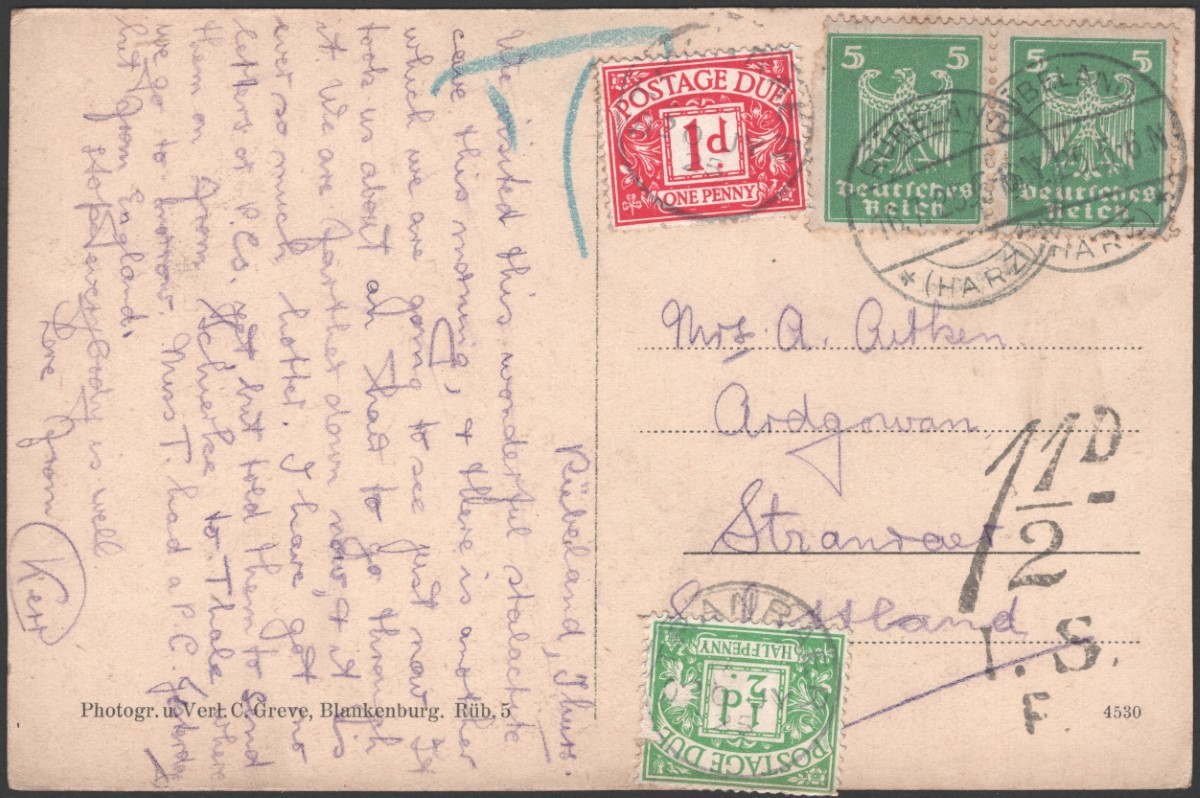 Rübeland, Thurs.
We visited this wonderful stalactite
cave this morning, & there is another
which we are going to see just now. It
took us about ah had to go through
it. We are farther down now, & it is
ever so much hotter. I have got no
letters or P.Cs. yet but told them to send
them on from Schierke to Thale where
we go to-morrow. Miss T. had a P.C. yesterday
but from England.
Hope everybody is well
Love from
Photogr. u. Verl. C. Greve, Blankenburg. Rüb. 5
POSTAGE DUE
1d
ONE PENNY
5 5
Deutsches
Reich
5 5
Deutsches
Reich
RÜBELAND
* (HARZ)
RÜBELAND
(HARZ) *
Mrs. A. Aitken
Ardgowan
Stranraer
Scotland
1 1/2 D
I. S.
F
STRANRAER
HALFPENNY
½d
POSTAGE DUE
4530